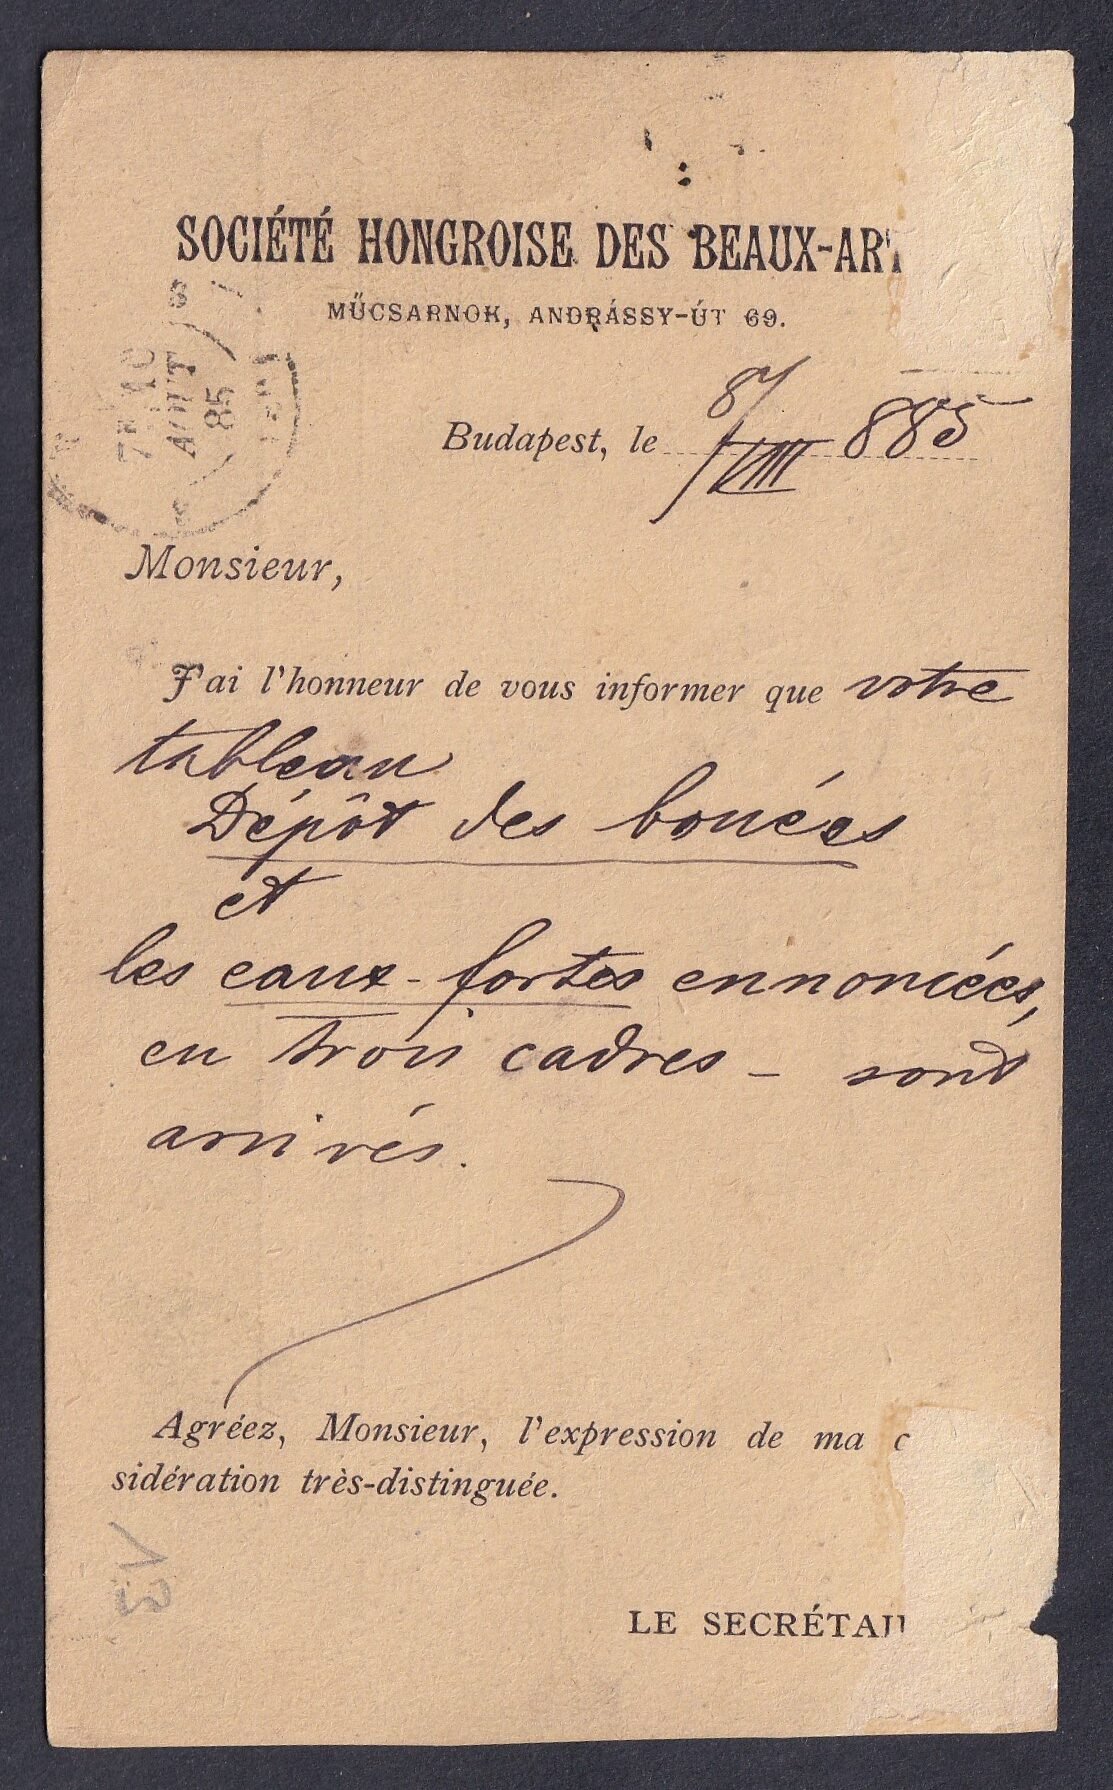 SOCIÉTÉ HONGROISE DES BEAUX-ART
MŰCSARNOK, ANDRÁSSY-ÚT 69.
7E 10
AOUT
85
Budapest, le 8/VIII 885
Monsieur,
J'ai l'honneur de vous informer que votre
tableau
Dépôt des bouées
et
les eaux-fortes ennoncées,
en trois cadres – sont
arrivés.
Agréez, Monsieur, l'expression de ma c
sidération très-distinguée.
LE SECRÉTAI